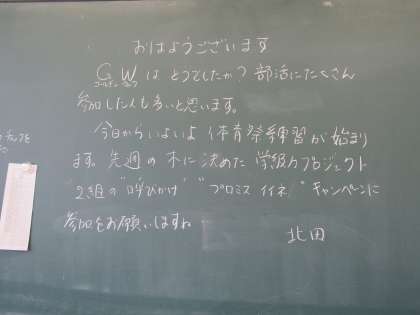 おはようございます
GWはどうでしたか？部活にたくさん
ゴールデンウィーク
参加した人も多いと思います。
今日からいよいよ体育祭練習が始まり
ます。先週の木に決めた学級のプロジェクト
"2組の"呼びかけ" "プロミスイイネ"キャンペーンに
参加をお願いしますね
北田